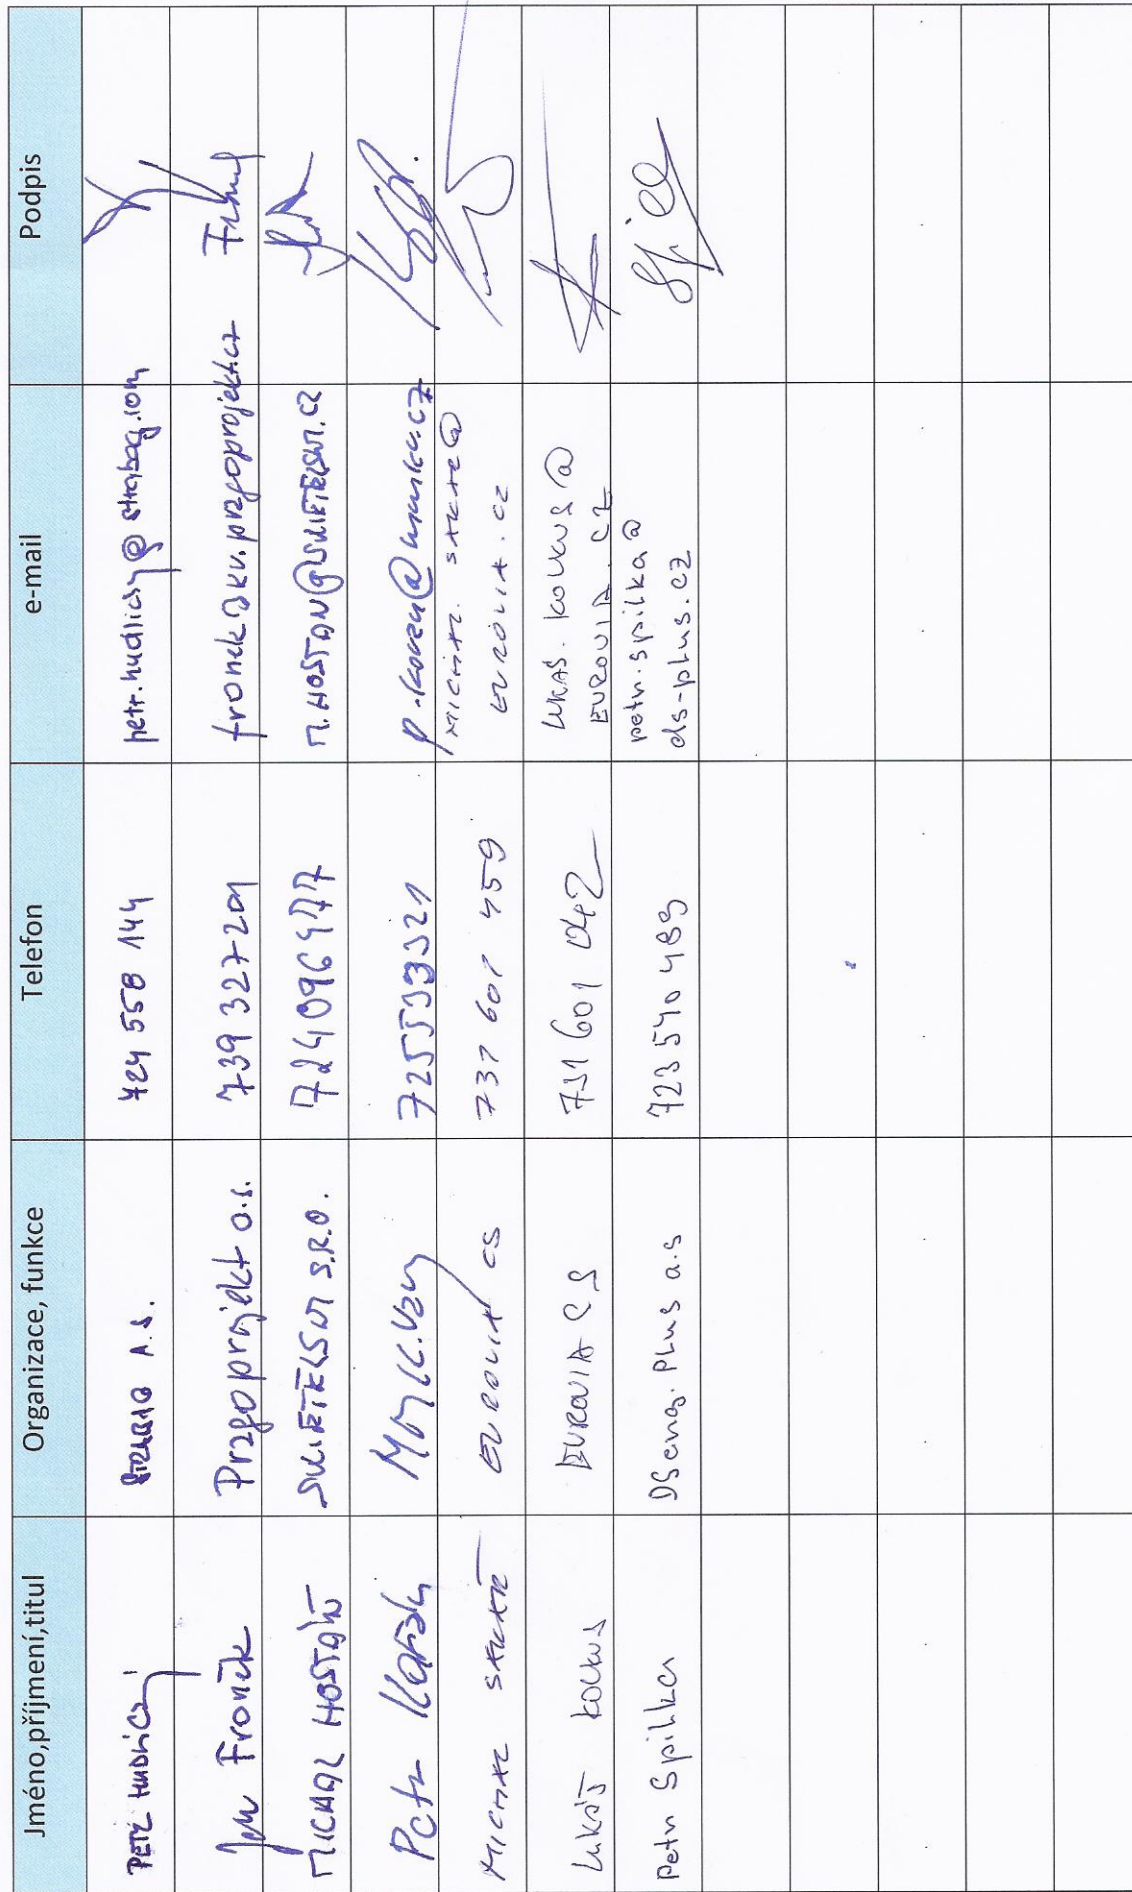 Jméno,příjmení,titul Organizace, funkce Telefon e-mail Podpis
PETR HUDLICKÝ STRABAG A.S. 724 558 144 petr.hudlicky@strabag.com
Jan Froněk Pragoprojekt a.s. 739 327201 fronek@kv.pragoprojekt.cz
MICHAL HOSTAŠ SWIETELSKY S.R.O. 724096477
Petr 725539321
MICHAL EUROVIA CS 737 601 459 MICHAL.
EUROVIA.CZ
Lukáš KOLKUS EUROVIA CS 731 601 042 LUKAS.KOLKUS@
EUROVIA.CZ
Petr Spilka Plus a.s 723 540 489 petr.spilka@
ds-plus.cz